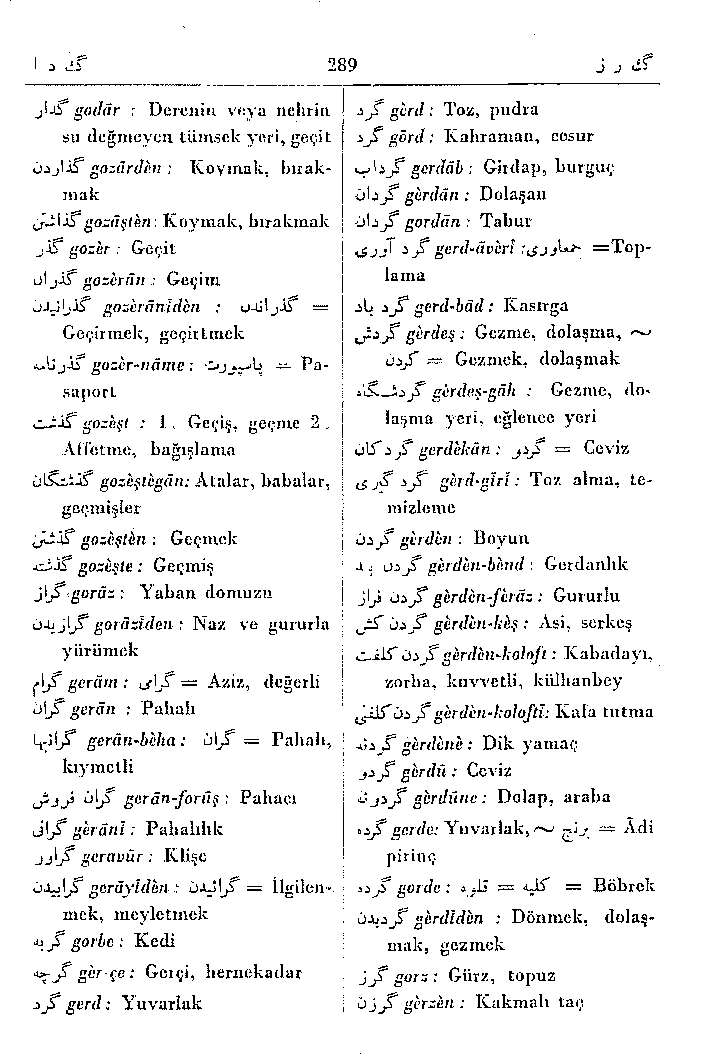 گ د ا 289 گ ر ز
گدار godār : Derenin veya nehrin
su değmeyen tümsek yeri, geçit
گذاردن gozārdèn : Koymak, bırak-
mak
گذاشتن gozāştèn : Koymak, bırakmak
گذر gozèr : Geçit
گذران gozèrān : Geçim
گذرانیدن gozèrānīdèn : گذراندن =
Geçirmek, geçirtmek
گذرنامه gozèr-nāme : پاسپورت = Pa-
saport
گذشت gozèşt : 1. Geçiş, geçme 2.
Affetme, bağışlama
گذشتگان gozèştègān: Atalar, babalar,
geçmişler
گذشتن gozèştèn : Geçmek
گذشته gozèşte : Geçmiş
گراز gorāz : Yaban domuzu
گرازیدن gorāzīden : Naz ve gururla
yürümek
گرام gerām : گرامی = Aziz, değerli
گران gerān : Pahalı
گرانبها gerān-bèha : گران = Pahalı,
kıymetli
گران فروش gerān-forūş : Pahacı
گرانی gèrānī : Pahalılık
گراور geravūr : Klişe
گراییدن gerāyīden : گرائیدن = İlgilen-
mek, meyletmek
گربه gorbe : Kedi
گرچه gèr-çe : Gerçi, hernekadar
گرد gerd : Yuvarlak
گرد gèrd : Toz, pudra
گرد gōrd : Kahraman, cesur
گرداب gerdāb : Girdap, burguç
گردان gèrdān : Dolaşan
گردان gordān : Tabur
گرد آوری gerd-āvèrī : جمع‌آوری = Top-
lama
گرد باد gerd-bād : Kasırga
گردش gèrdeş : Gezme, dolaşma, ~
کردن = Gezmek, dolaşmak
گردشگاه gèrdeş-gāh : Gezme, do-
laşma yeri, eğlence yeri
گردکان gerdèkān : گردو = Ceviz
گرد گیری gèrd-gīrī : Toz alma, te-
mizleme
گردن gèrden : Boyun
گردن بند gèrdèn-bènd : Gerdanlık
گردن فراز gèrdèn-fèrāz : Gururlu
گردن کش gèrdèn-kèş : Asi, serkeş
گردن کلفت gèrdèn-koloft : Kabadayı,
zorba, kuvvetli, külhanbey
گردن کلفتی gèrdèn-koloftī: Kafa tutma
گردنه gèrdènè : Dik yamaç
گردو gèrdū : Ceviz
گردونه gèrdūne : Dolap, araba
گرده gerde: Yuvarlak, ~ برنج = Âdi
pirinç
گرده gorde : قلوه = کلیه = Böbrek
گردیدن gèrdīdèn : Dönmek, dolaş-
mak, gezmek
گرز gorz : Gürz, topuz
گرزن gèrzèn : Kakmalı taç